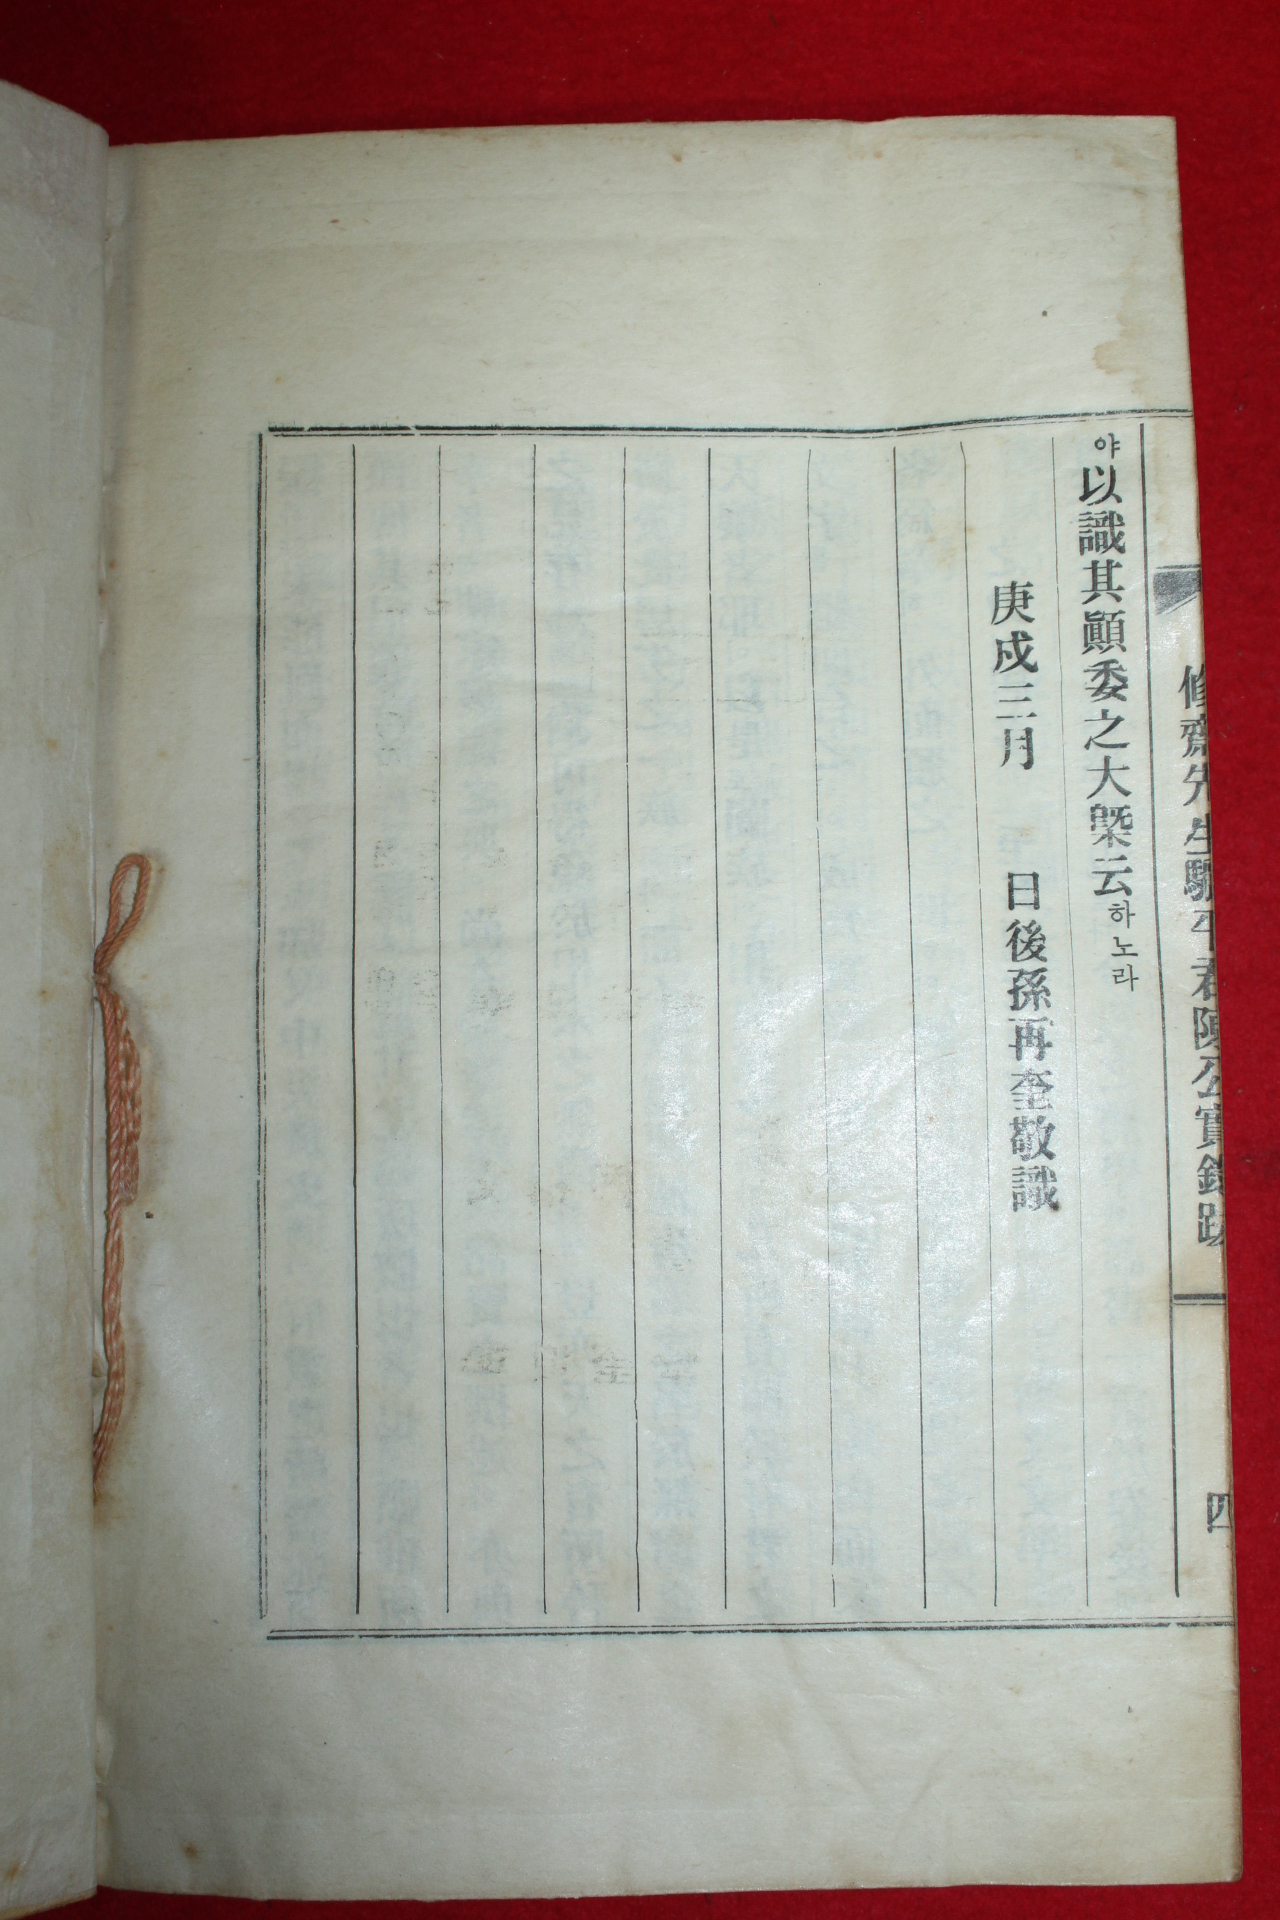 修齋先生駱牛君陳公實錄跋
四
야以識其顚委之大槩云하노라
庚戍三月 日後孫再奎敬識